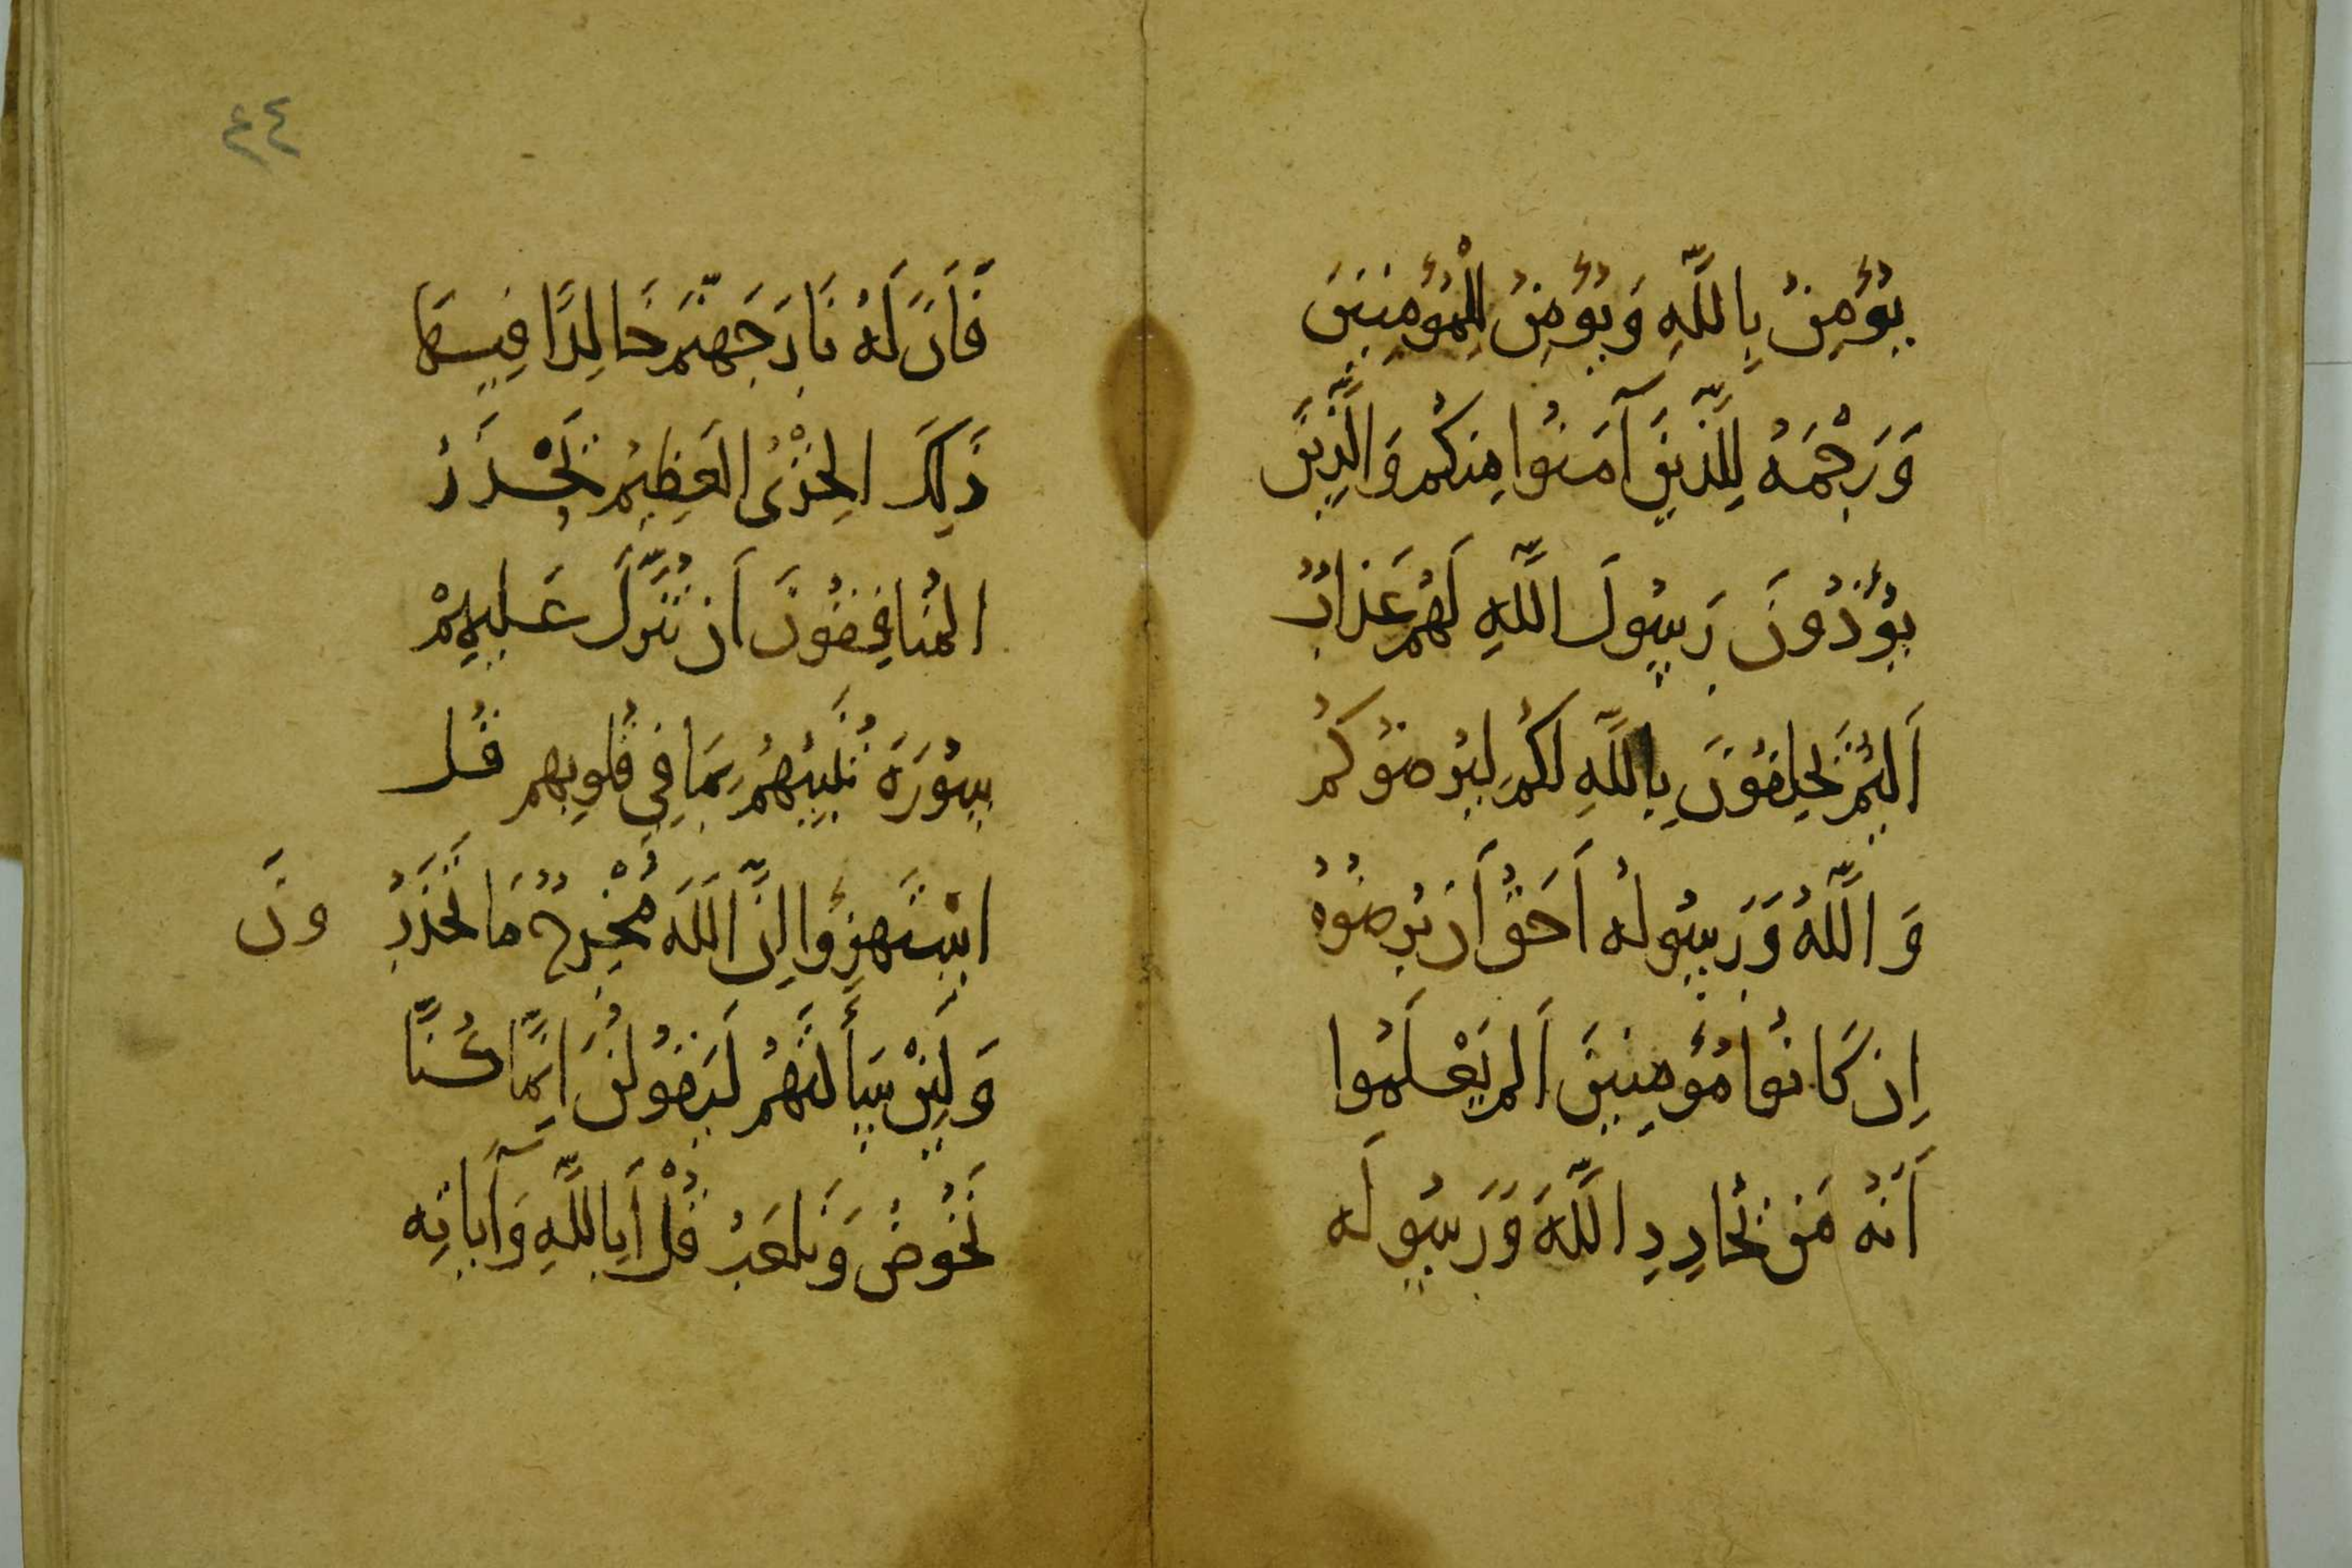 يُؤْمِنُ بِاللَّهِ وَيُؤْمِنُ لِلْمُؤْمِنِينَ
وَرَحْمَةُ لِلَّذِينَ آمَنُوا مِنكُم وَالَّذِينَ
يُؤْذُونَ رَسُولَ اللَّهِ لَهُم عَذَابٌ
أَلِيمٌ يَحْلِفُونَ بِاللَّهِ لَكُم لِيُرضُوكُم
وَاللَّهُ وَرَسُولُه أَحَقُّ أَن يُرضُوُهُ
إِن كَانُوا مُؤْمِنِينَ أَلَم يَعْلَمُوا
أَنَّهُ مَن يُحَادِدِ اللَّهَ وَرَسُولَه
فَأَنَّ لَهُ نَارَ جَهَنَّمَ خَالِدًا فِيهَا
ذَلِكَ الخِزْىُ العَظِيمُ يَحْذَرُ
المُنَافِقُونَ أَن تُنَزَّلَ عَلَيهِمْ
سُورَةٌ تُنَبِّئُهُم بِمَا فِي قُلُوبِهِم قُل
اسْتَهزِؤُا إِنَّ اللَّهَ مُخْرِجٌ مَا تَحذَرُونَ
وَلَئِنْ سَأَلتَهُم لَيَقُولُنَّ إِنَّمَا كُنَّا
نَخُوضُ وَنَلعَبُ قُلْ أَبِاللَّهِ وَآيَاتِه
٤٤